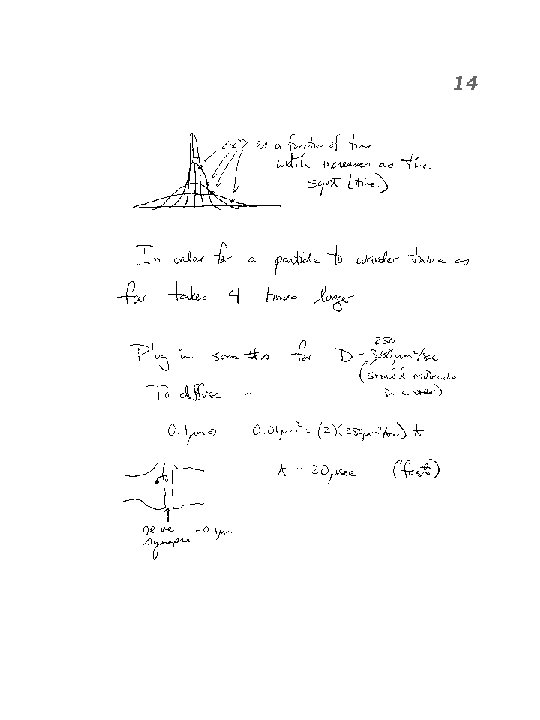 14
as a function of time
width increases as the
sqrt (time)
In order for a particle to wander twice as
far takes 4 times longer
Plug in some #s for D = 250 μm²/sec
(small molecule
in water)
To diffuse
0.1 μm 0.01 μm² = (2)(250 μm²/sec) t
t = 20 μsec (fast)
nerve ~0.1 μm
synapse